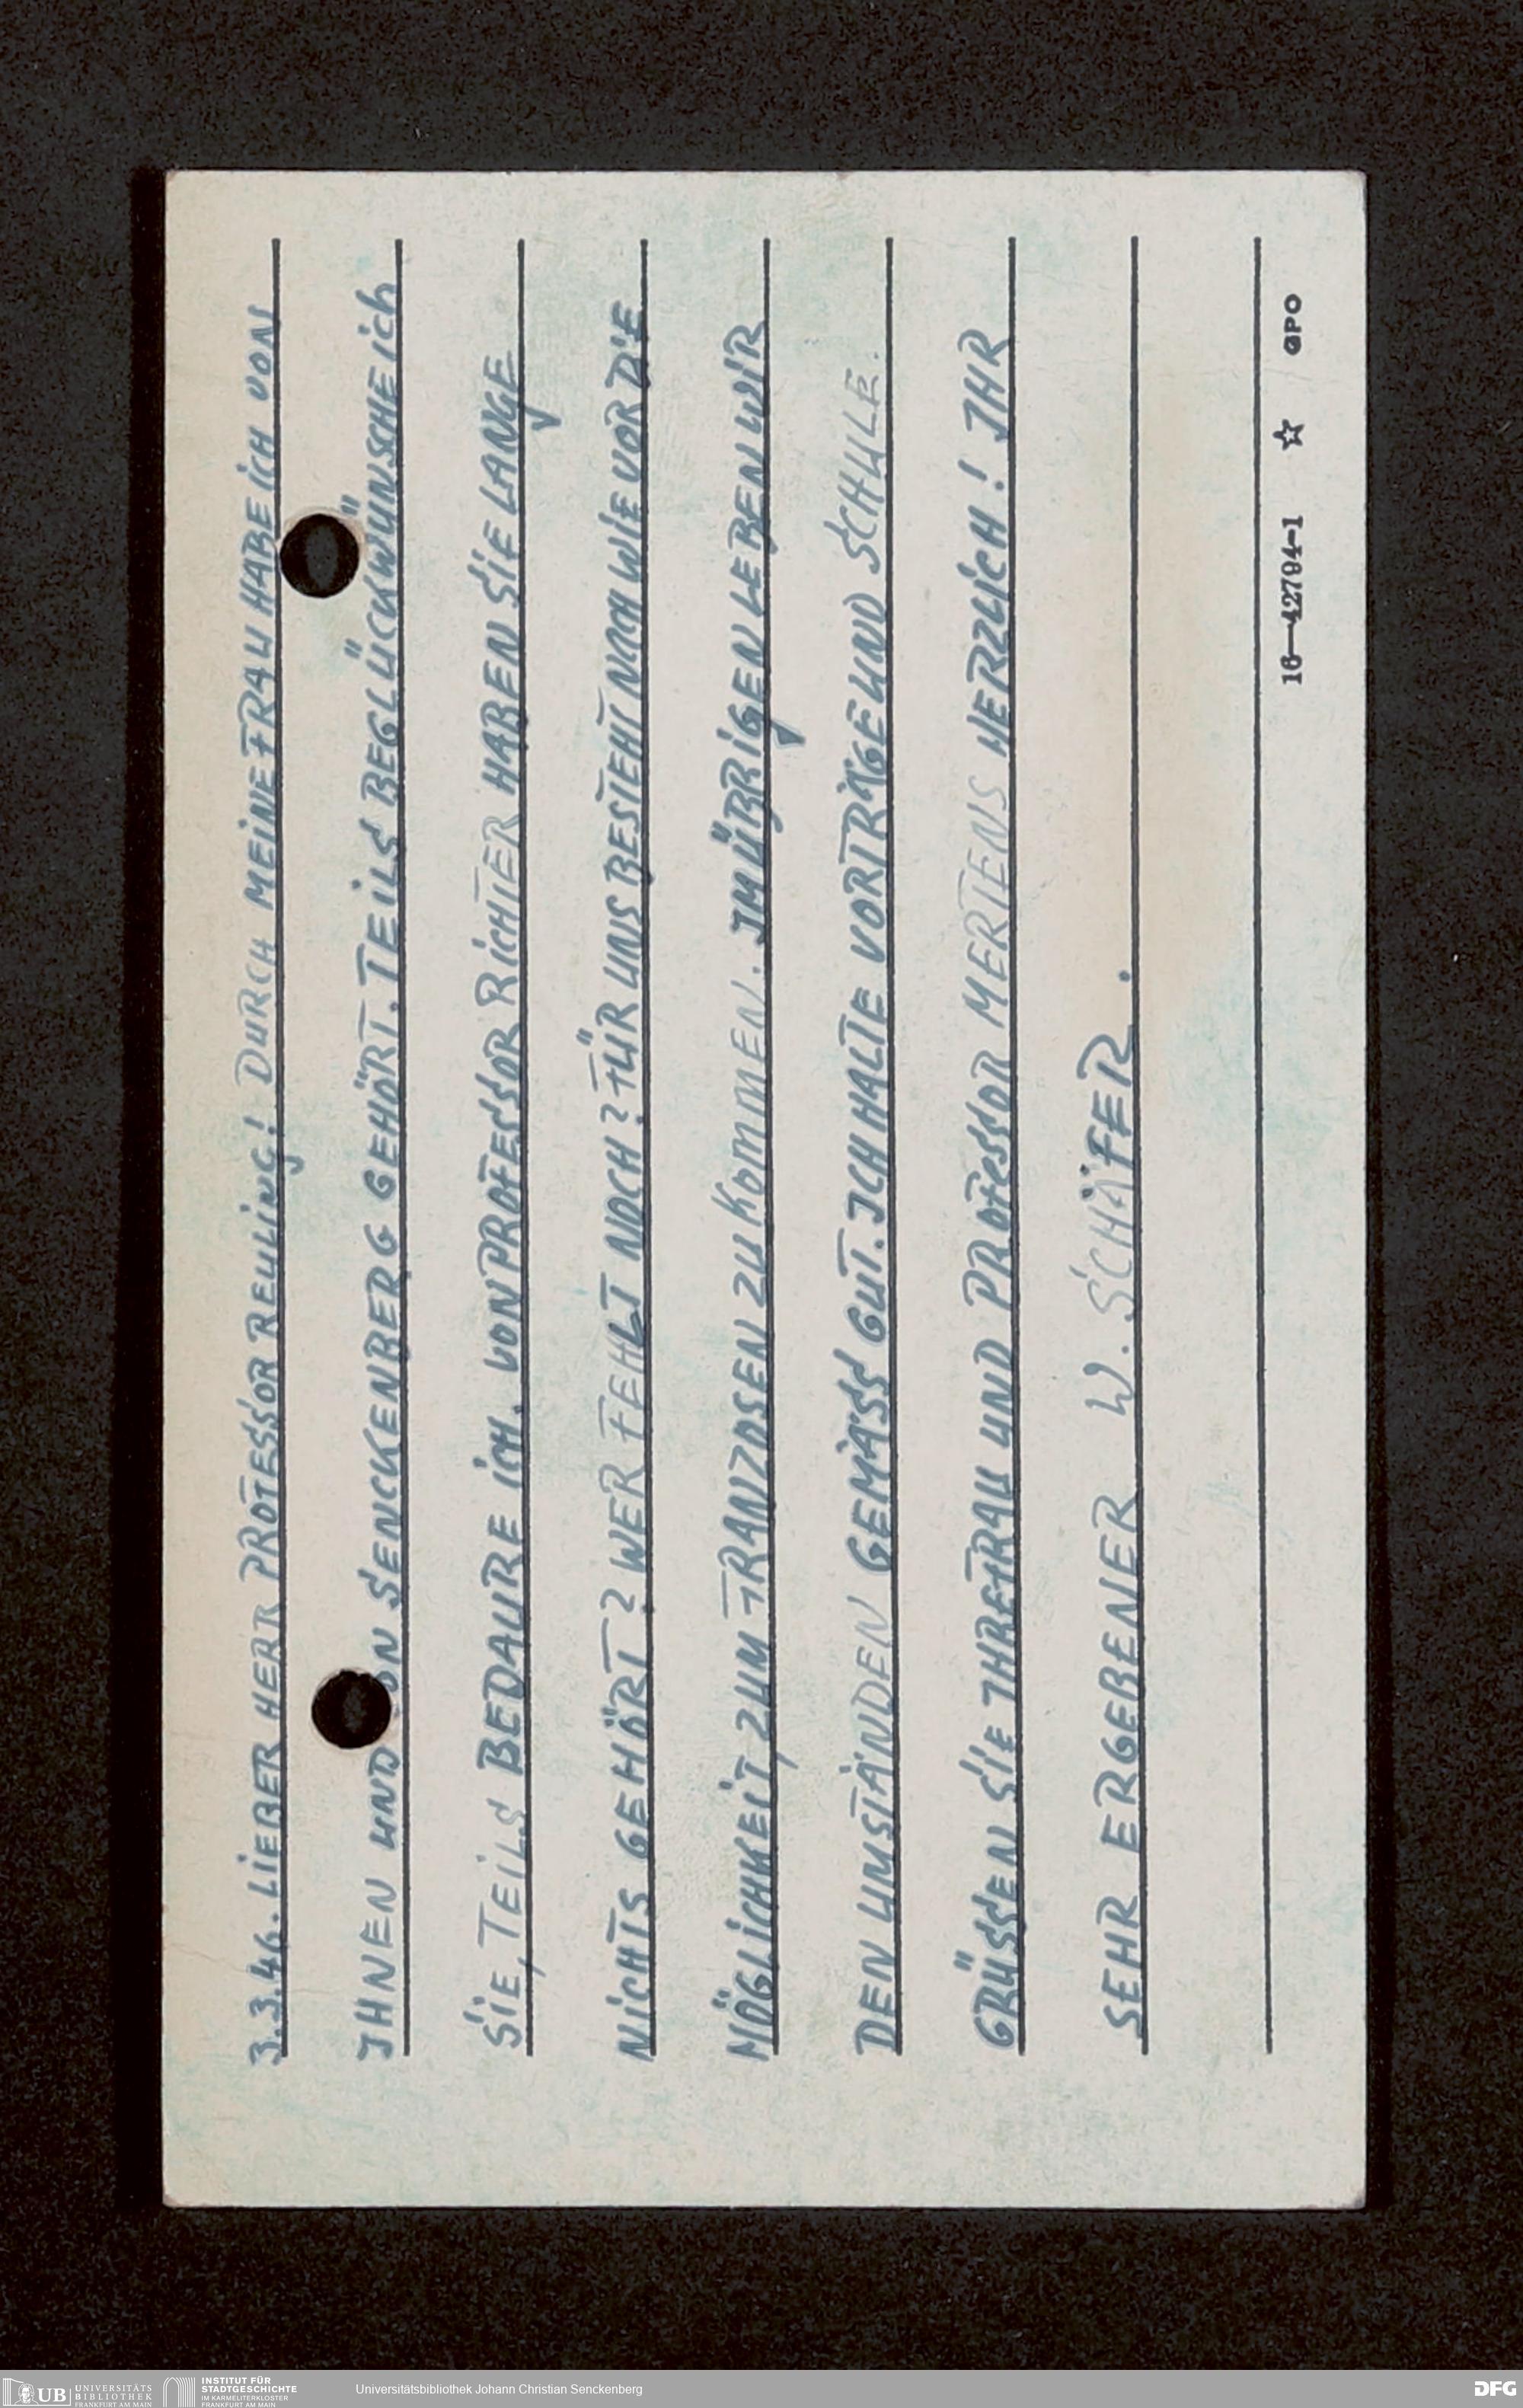 3.3.46. LIEBER HERR PROFESSOR REULING! DURCH MEINE FRAU HABE ICH VON
IHNEN UND VON SENCKENBERG GEHÖRT. TEILS BEGLÜCKWÜNSCHE ICH
SIE, TEILS BEDAURE ICH. VON PROFESSOR RICHTER HABEN SIE LANGE
NICHTS GEHÖRT? WER FEHLT NOCH? FÜR UNS BESTEHT NACH WIE VOR DIE
MÖGLICHKEIT, ZUM FRANZOSEN ZU KOMMEN. IM ÜBRIGEN LEBEN WIR
DEN UMSTÄNDEN GEMÄSS GUT. ICH HALTE VORTRÄGE UND SCHULE.
GRÜSSEN SIE IHRE FRAU UND PROFESSOR MERTENS HERZLICH! IHR
SEHR ERGEBENER W. SCHÄFER.
16—42794-1 ☆ GPO
UB UNIVERSITÄTS BIBLIOTHEK FRANKFURT AM MAIN
INSTITUT FÜR STADTGESCHICHTE IM KARMELITERKLOSTER FRANKFURT AM MAIN
Universitätsbibliothek Johann Christian Senckenberg
DFG